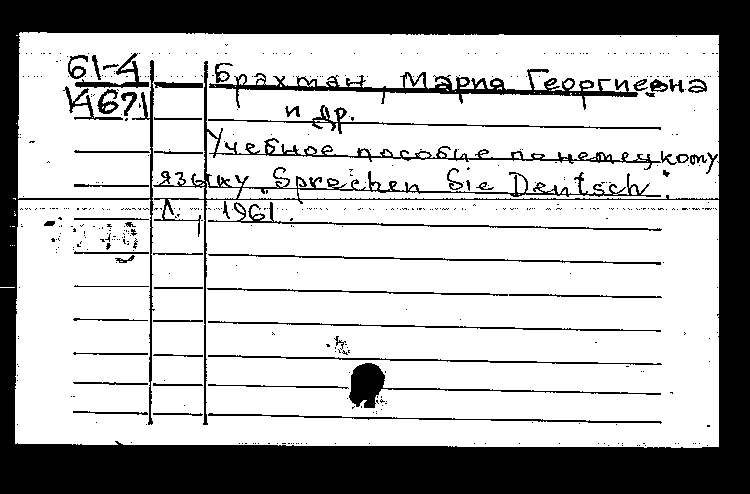 61-4
14671
Брахман, Мария Георгиевна
и др.
Учебное пособие по немецкому
языку „Sprechen Sie Deutsch".
Л., 1961.